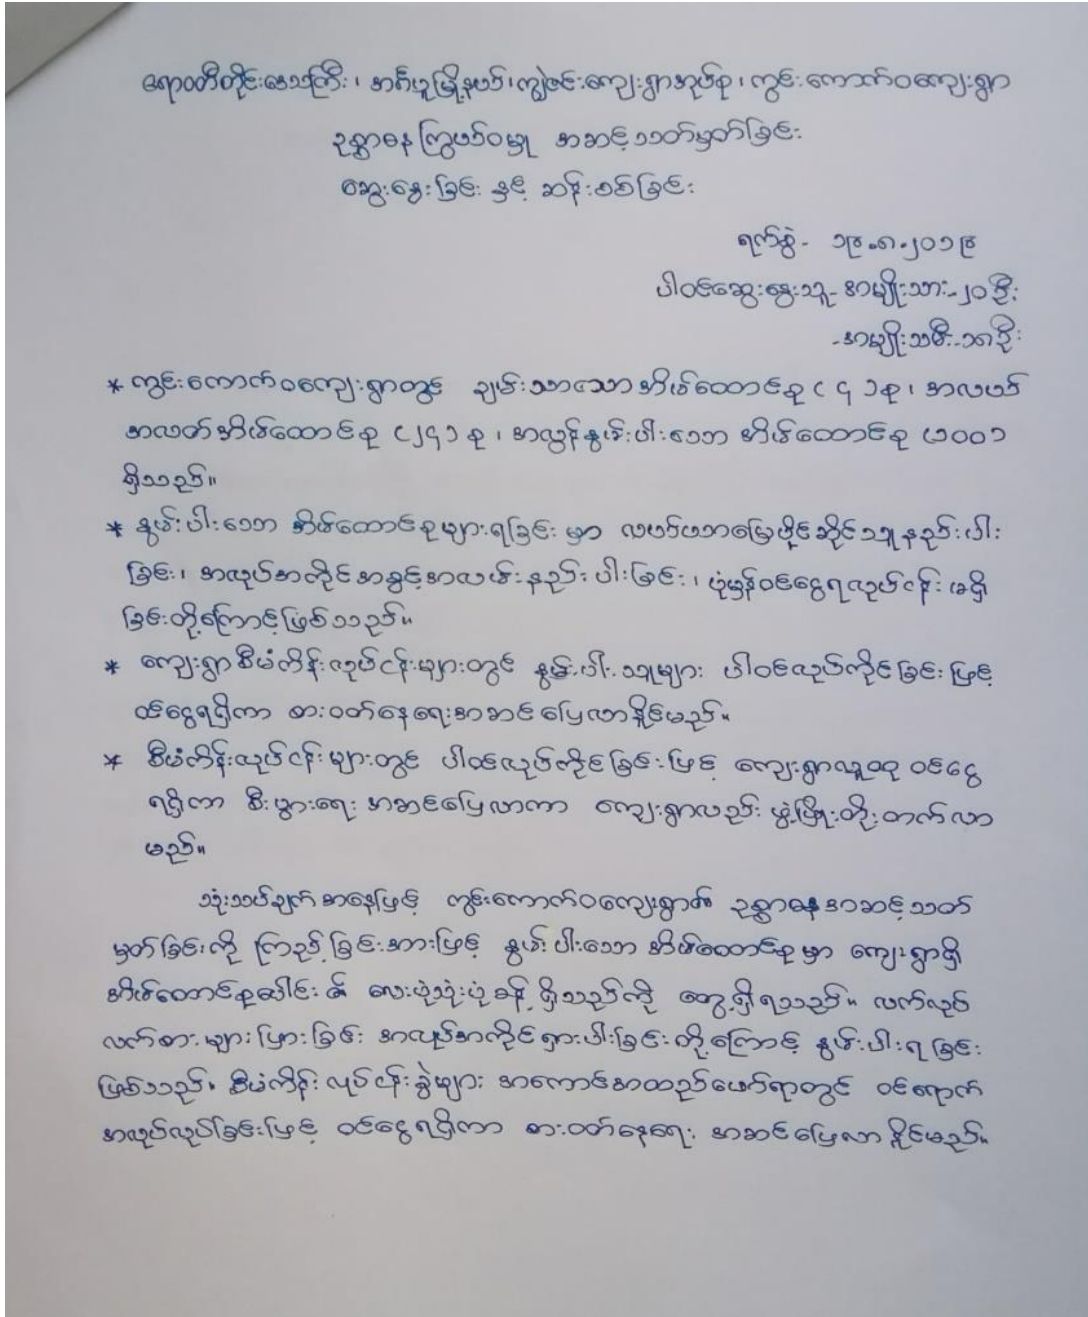 ဧရာဝတီတိုင်းဒေသကြီး၊ အင်္ဂပူမြို့နယ်၊ ကျွဲဇင်းကျေးရွာအုပ်စု၊ ကွင်းကောက်ဝကျေးရွာ
ဥစ္စာဓနကြွယ်ဝမှု အဆင့်သတ်မှတ်ခြင်း
ဆွေးနွေးခြင်း နှင့် ဆန်းစစ်ခြင်း
ရက်စွဲ - ၁၉.၈.၂၀၁၉
ပါဝင်ဆွေးနွေးသူ - အမျိုးသား - ၂၀ ဦး
- အမျိုးသမီး - ဦး
* ကွင်းကောက်ဝကျေးရွာတွင် ချမ်းသာသောအိမ်ထောင်စု ( ၄ ) စု၊ အလယ်
အလတ်အိမ်ထောင်စု (၂၄) စု၊ အလွန်နွမ်းပါးသော အိမ်ထောင်စု
ရှိသည်။
* နွမ်းပါးသော အိမ်ထောင်စုများရခြင်းမှာ လယ်ယာမြေပိုင်ဆိုင်သူနည်းပါး
ခြင်း၊ အလုပ်အကိုင်အခွင့်အလမ်းနည်းပါးခြင်း၊ ပုံမှန်ဝင်ငွေရလုပ်ငန်း မရှိ
ခြင်းတို့ကြောင့်ဖြစ်သည်။
* ကျေးရွာစီမံကိန်းလုပ်ငန်းများတွင် နွမ်းပါးသူများ ပါဝင်လုပ်ကိုင်ခြင်းဖြင့်
ဝင်ငွေရရှိကာ စားဝတ်နေရေးအဆင်ပြေလာနိုင်မည်။
* စီမံကိန်းလုပ်ငန်းများတွင် ပါဝင်လုပ်ကိုင်ခြင်းဖြင့် ကျေးရွာလူထု ဝင်ငွေ
ရရှိကာ စီးပွားရေး အဆင်ပြေလာကာ ကျေးရွာလည်း ဖွံ့ဖြိုးတိုးတက်လာ
မည်။
သုံးသပ်ချက်အနေဖြင့် ကွင်းကောက်ဝကျေးရွာ၏ ဥစ္စာဓနအဆင့်သတ်
မှတ်ခြင်းကို ကြည့်ခြင်းအားဖြင့် နွမ်းပါးသော အိမ်ထောင်စုမှာ ကျေးရွာရှိ
အိမ်ထောင်စုပေါင်း၏ လေးပုံသုံးပုံခန့် ရှိသည်ကို တွေ့ရှိရသည်။ လက်လုပ်
လက်စားများပြားခြင်း အလုပ်အကိုင်ရှားပါးခြင်းတို့ကြောင့် နွမ်းပါးရခြင်း
ဖြစ်သည်။ စီမံကိန်းလုပ်ငန်းခွဲများ အကောင်အထည်ဖော်ရာတွင် ဝင်ရောက်
အလုပ်လုပ်ခြင်းဖြင့် ဝင်ငွေရရှိကာ စားဝတ်နေရေး အဆင်ပြေလာနိုင်မည်။